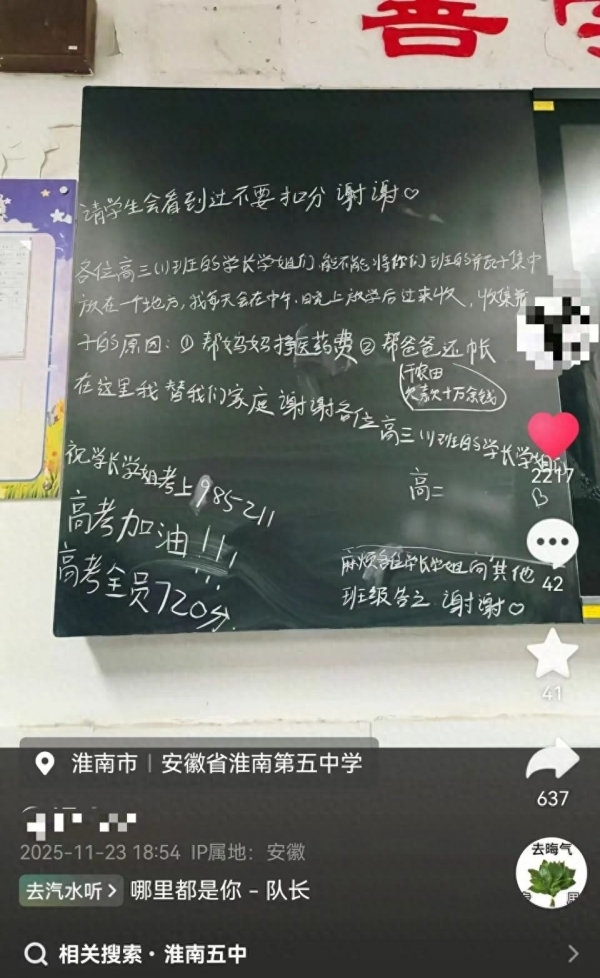 善
请学生会看到过不要扣分 谢谢♡
各位高三(1)班的学长学姐们,能不能将你们班的瓶子集中
放在一个地方,我每天会在中午、晚上放学后过来收,收集瓶
子的原因:① 帮妈妈挣医药费② 帮爸爸还帐
行农田
欠款十万余钱
在这里我替我们家庭谢谢各位高三(1)班的学长学姐
高二
祝学长学姐考上985211
高考加油!!!
高考全员720分.
麻烦各位学长学姐向其他
班级告之.谢谢♡
2217
42
41
637
淮南市|安徽省淮南第五中学
2025-11-23 18:54 IP属地:安徽
去汽水听> 哪里都是你 - 队长
去晦气
相关搜索·淮南五中